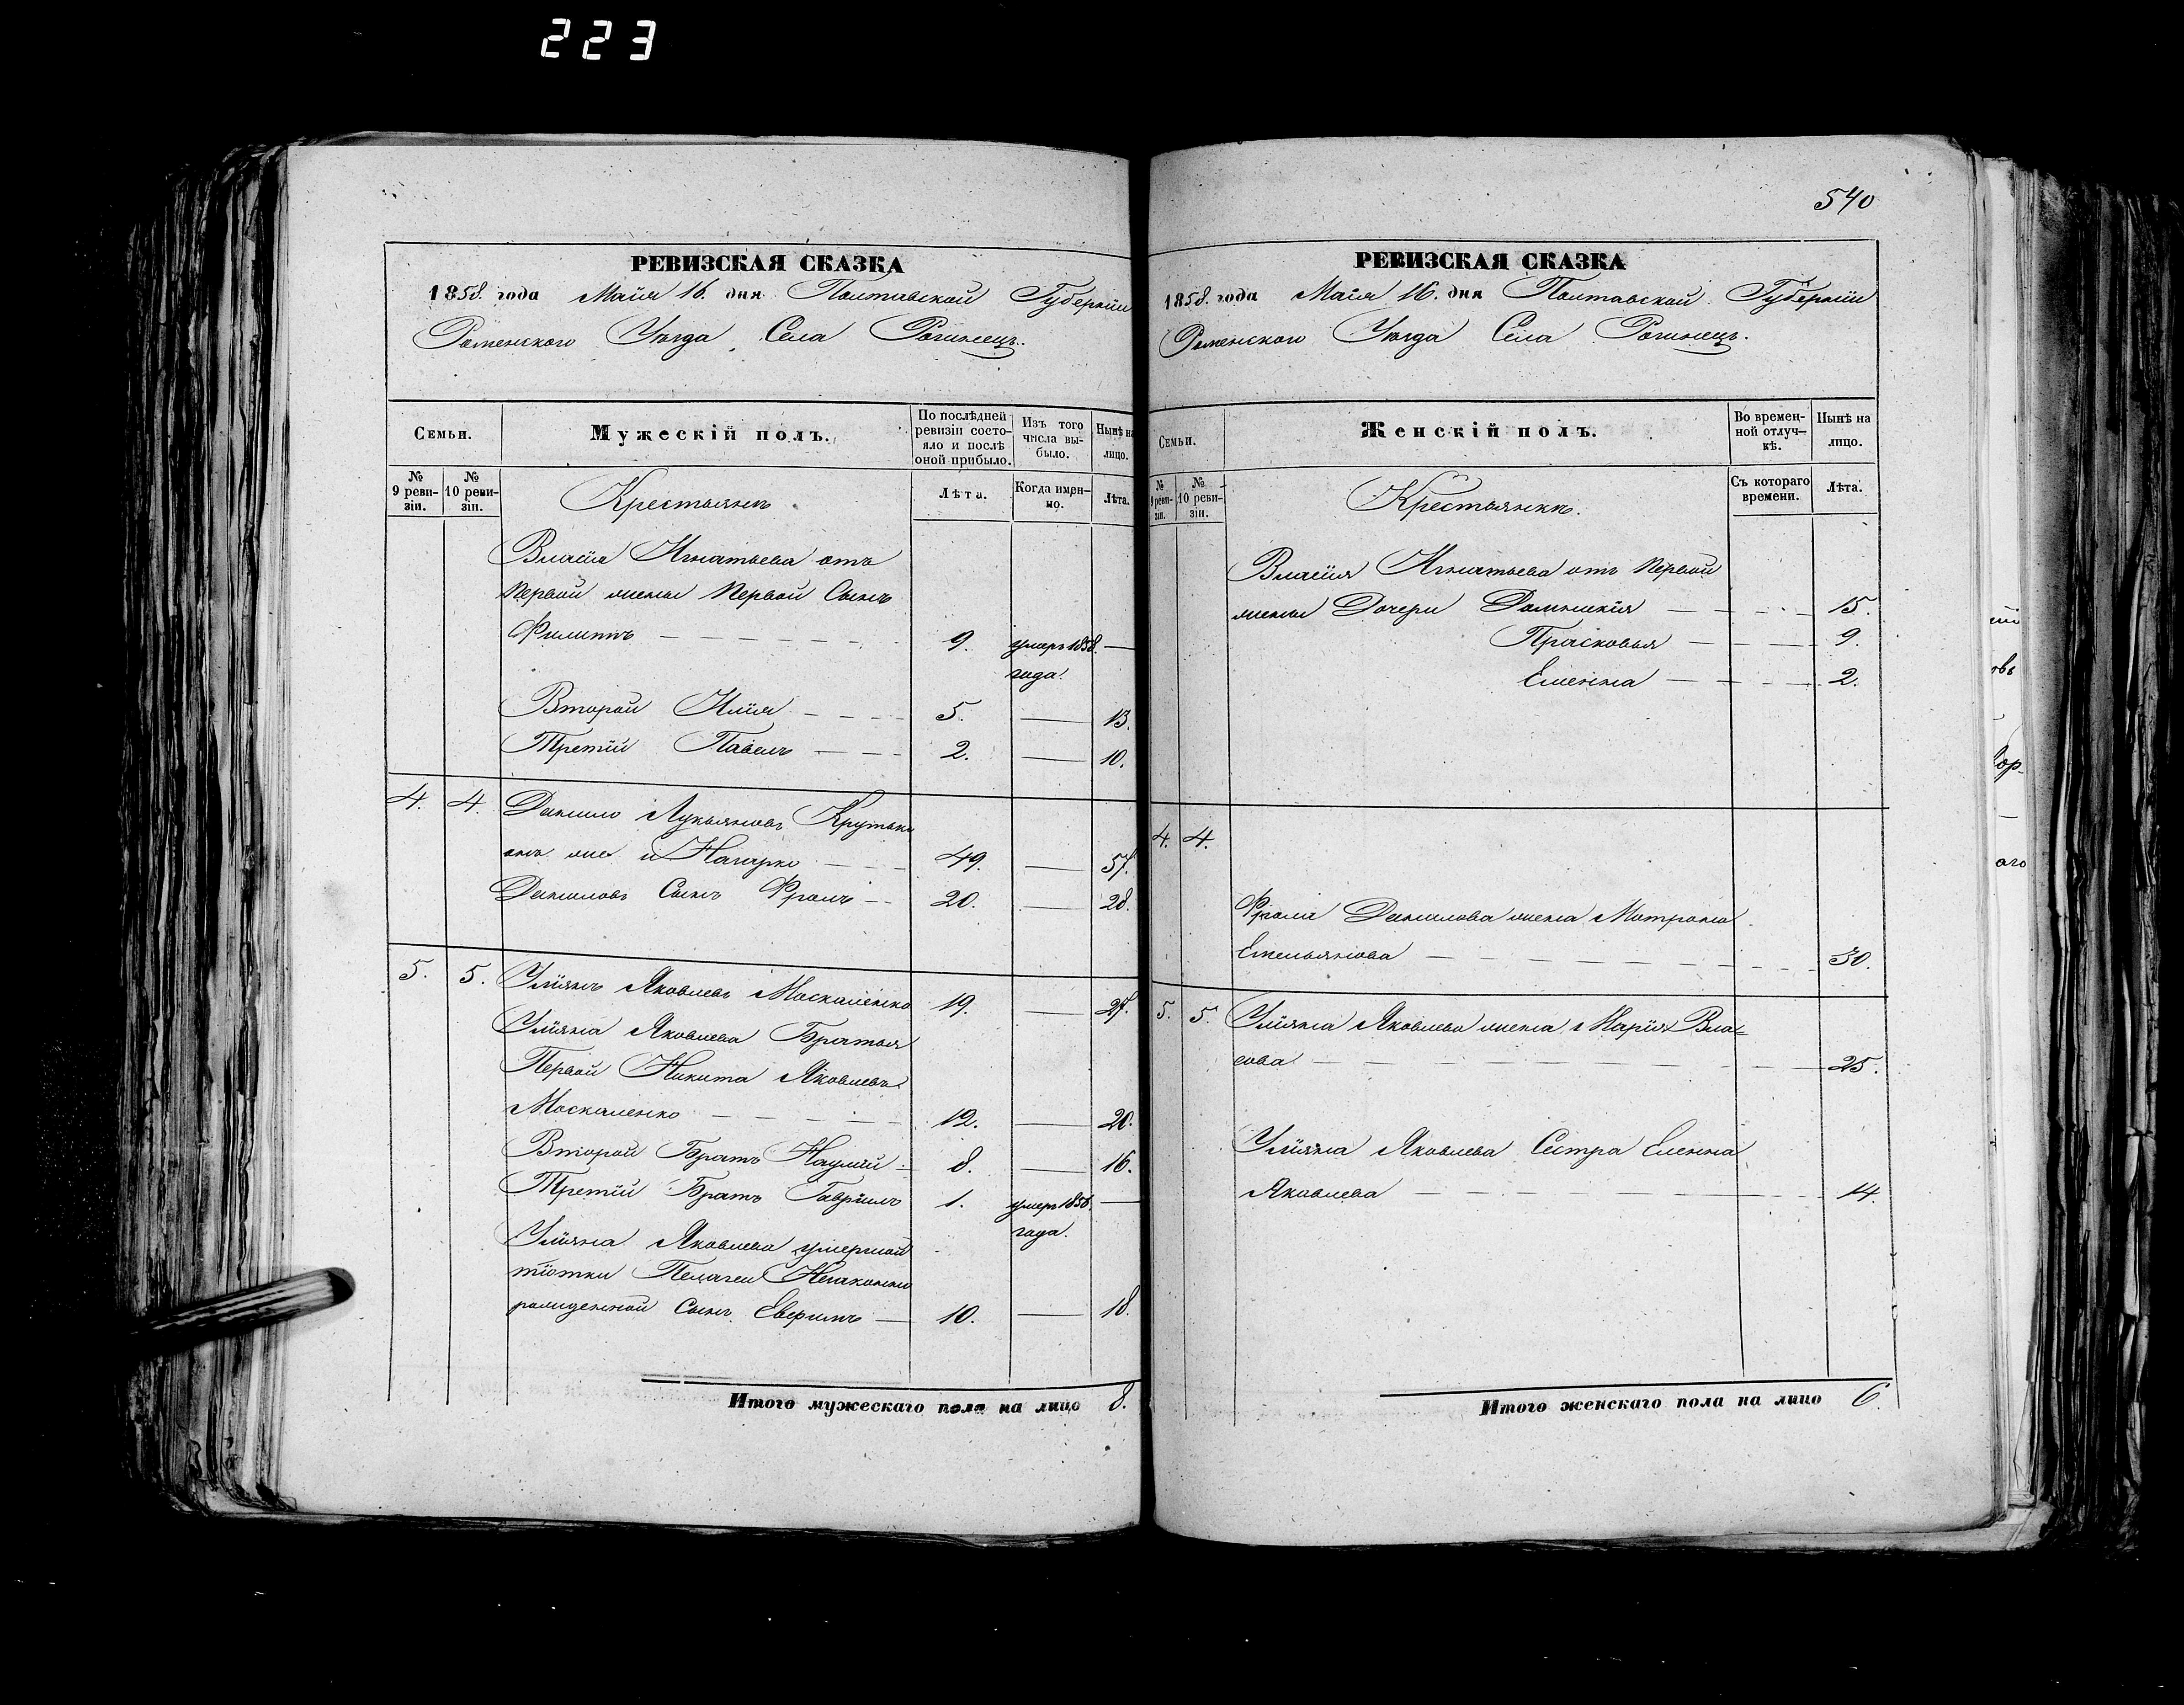 223
540
РЕВИЗСКАЯ СКАЗКА
1858. года Майя 16. дня Полтавской Губернiи
Роменского Уѣзда Села Рогинецъ.
Семьи.
Мужескiй полъ.
По послѣдней ревизiи состояло и послѣ оной прибыло.
Изъ того числа выбыло.
Нынѣ на лицо.
№ 9 ревизiи.
№ 10 ревизiи.
Крестьянъ
Лѣта.
Когда именно.
Лѣта.
Власiя Игнатьева отъ
первой жены первой Сынъ
Филиппъ 9. умеръ 1858. —
года.
Второй Илiя 5. — 13.
Третiй Павелъ 2. — 10.
4. 4. Данило Лукьяновъ Крутько
онъ же и 49. — 57.
Даниловъ Сынъ Фролъ 20. — 28.
5. 5. Улiянъ Яковлевъ Москаленко 19. — 27.
Улiяна Яковлева Братья
Первой Никита Яковлевъ
Москаленко 12. — 20.
Второй Братъ Наумъ 8. — 16.
Третiй Братъ Гаврiилъ 1. умеръ 1858. —
года.
Улiяна Яковлева умершой
тiотки Пелагеи
рожденной Сынъ 10. — 18.
Итого мужескаго пола на лицо 8.
РЕВИЗСКАЯ СКАЗКА
1858. года Майя 16. дня Полтавской Губернiи
Роменского Уѣзда Села Рогинецъ.
Семьи.
Женскiй полъ.
Во временной отлучкѣ.
Нынѣ на лицо.
№ 9 ревизiи.
№ 10 ревизiи.
Крестьянкъ.
Съ котораго времени.
Лѣта.
Власiя Игнатьева отъ первой
жены Дочери Домникiя 15.
Прасковья 9.
Еленна 2.
4. 4.
Фрола Данилова жена Матрона
Емельянова 30.
5. 5. Улiяна Яковлева жена Марiя Вла=
сова 25.
Улiяна Яковлева Сестра Еленна
Яковлева 14.
Итого женскаго пола на лицо 6.